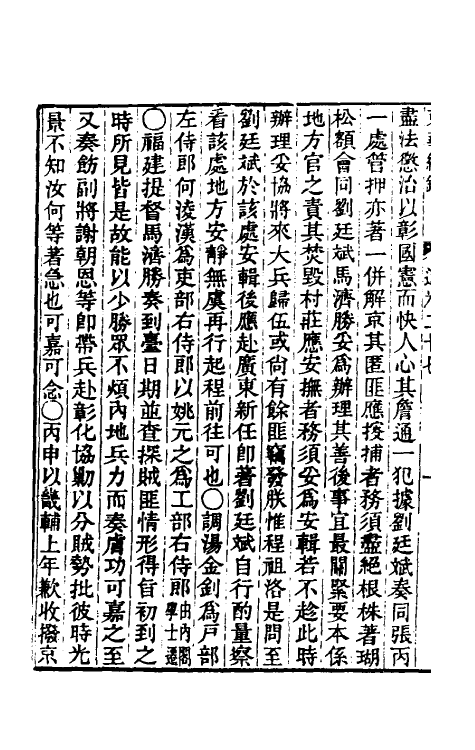 盡法懲治以彰國憲而快人心其詹通一犯據劉廷斌奏同張丙
一處管押亦著一併解京其匿匪應搜捕者務須盡絕根株著瑚
松額會同劉廷斌馬濟勝妥爲辦理其善後事宜最關緊要本係
地方官之責其焚毀村莊應安撫者務須妥爲安輯若不趁此時
辦理妥協將來大兵歸伍或尚有餘匪竊發朕惟程祖洛是問至
劉廷斌於該處安輯後應赴廣東新任卽著劉廷斌自行酌量察
看該處地方安靜無虞再行起程前往可也〇調湯金釗爲戶部
左侍郎何淩漢爲吏部右侍郎以姚元之爲工部右侍郎由內閣學士遷
〇福建提督馬濟勝奏到臺日期並查探賊匪情形得旨初到之
時所見皆是故能以少勝眾不煩內地兵力而奏膚功可嘉之至
又奏飭副將謝朝恩等卽帶兵赴彰化協勦以分賊勢批彼時光
景不知汝何等著急也可嘉可念〇丙申以畿輔上年歉收撥京